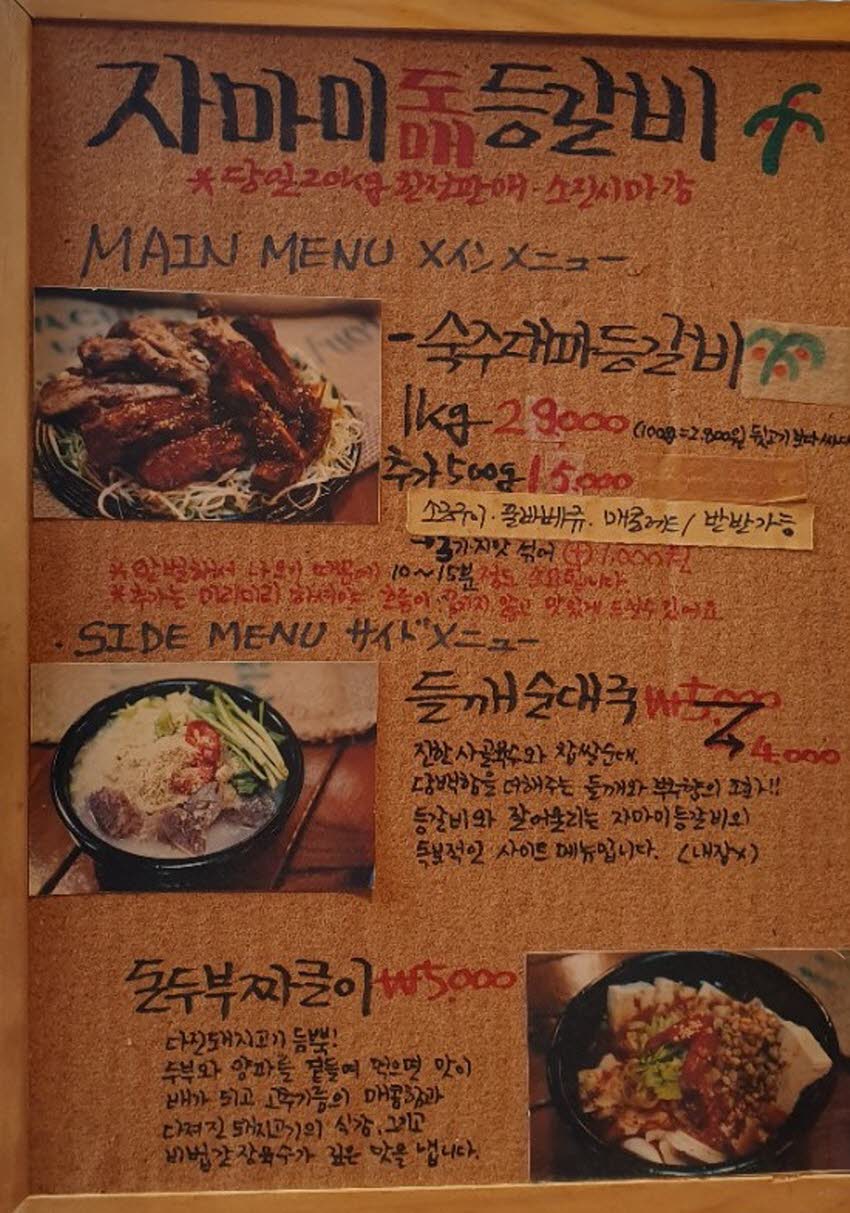 자마미 도매 등갈비
* 당일 20kg 한정판매. 소진시마감
MAIN MENU メインメニュー
- 숙주대파등갈비
1kg 28.000 (100g=2.800원 뒷고기보다싸다
추가 500g 15.000
소금구이. 꿀바베큐. 매콤레드 / 반반가능
→ 3가지맛 섞어 (+) 1.000원
* 초벌하여 나오기 때문에 10~15분 정도 소요됩니다
* 추가는 미리미리 하셔야 흐름이 끊기지 않고 맛있게 드실수있어요
. SIDE MENU サイドメニュー
들깨순대국 ₩5.000
4.000
진한 사골육수와 찹쌀순대.
담백함을 더해주는 들깨와 부추향의 조화!!
등갈비와 잘어울리는 자마미등갈비의
특별적인 사이드메뉴입니다. (내장x)
돈두부짜글이 ₩5.000
다진돼지고기 듬뿍!
두부와 양파를 곁들여 먹으면 맛이
배가 되고 고추기름의 매콤함과
다져진 돼지고기의 식감, 그리고
비법간장육수가 깊은 맛을 냅니다.